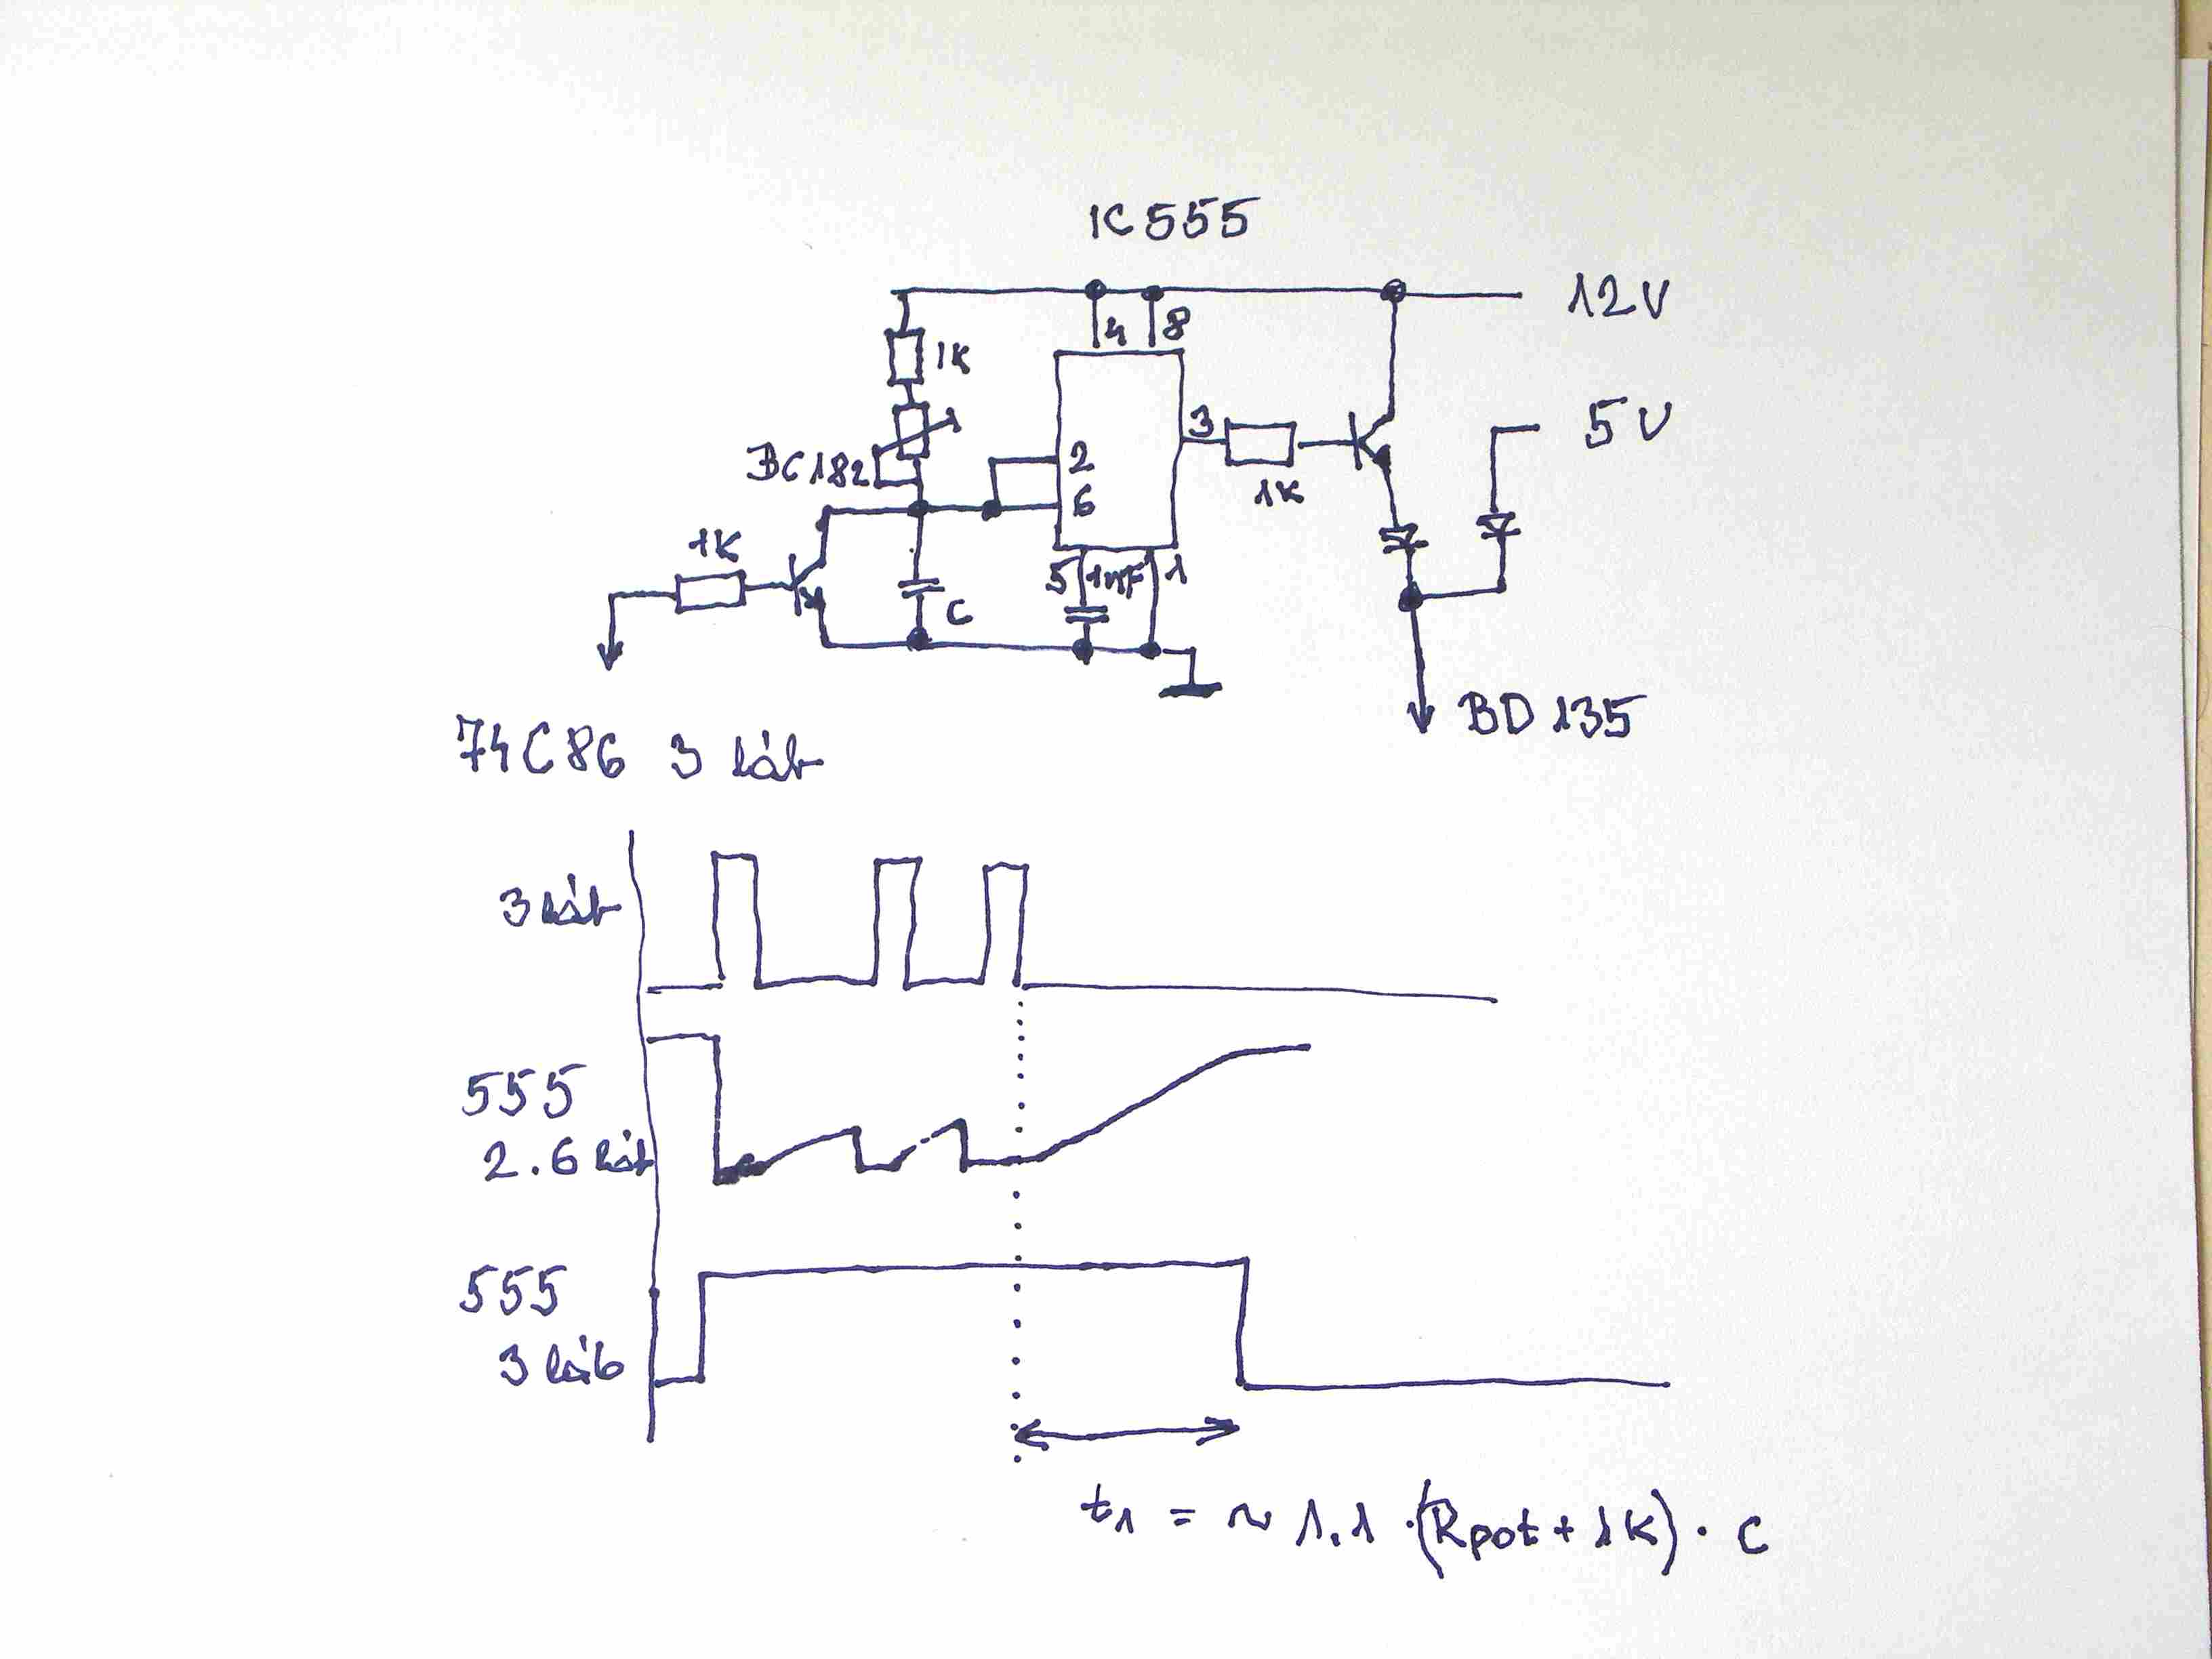 IC 555
12V
4 8
1K
3
5V
BC182
2
6
1K
1K
5 1nF 1
C
BD 135
74C86 3 láb
3 láb
555
2.6 láb
555
3 láb
t1 = ~ 1.1 · (Rpot + 1K) · C